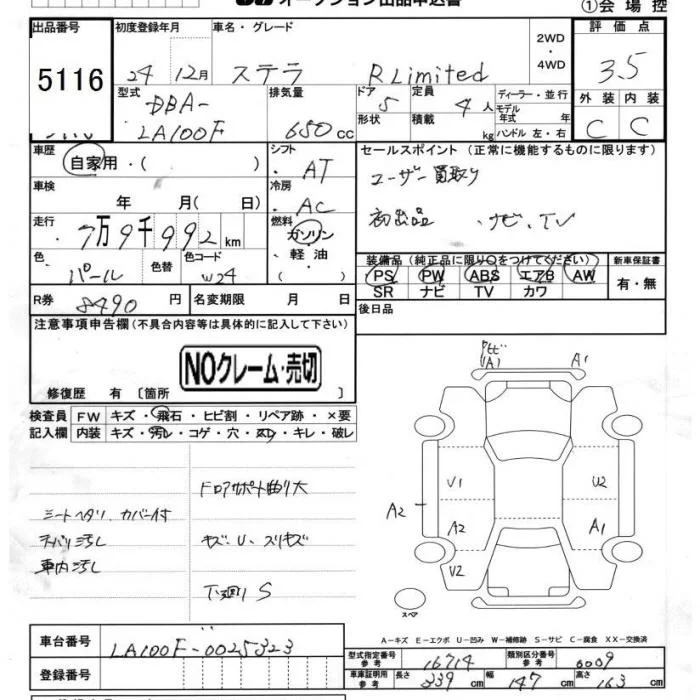 オークション出品申込書
①会場控
出品番号 初度登録年月 車名・グレード 2WD・4WD 評価点
5116 24年12月 ステラ R Limited 3.5
型式 排気量 ドア 定員 ディーラー・並行 外装 内装
DBA-LA100F 650cc 5 4人 モデル年式 年 C C
形状 積載 kg ハンドル 左・右
車歴 シフト セールスポイント(正常に機能するものに限ります)
自家用・( ) AT ユーザー買取り
車検 冷房
年 月( 日) AC 初出品 ・ナビ、TV
走行 燃料
7万9千992km ガソリン・軽油・( )
色 色替 色コード 装備品(純正品に限り○をつけてください) 新車保証書
パール W24 PS PW ABS エアB AW 有・無
SR ナビ TV カワ
R券 8490円 名変期限 月 日 後日品
注意事項申告欄(不具合内容等は具体的に記入して下さい)
NOクレーム・売切
修復歴 有 〔箇所 〕
検査員 FW キズ・飛石・ヒビ割・リペア跡・×要
記入欄 内装 キズ・汚レ・コゲ・穴・スレ・キレ・破レ
トビ
A1 A1
ドアサポート曲り大
V1 U2
シートヘタリ、カバー付
A2 A2 A1
天バリ汚し キズ、U、スリキズ
車内汚し
V2
下廻り S
スペア
A-キズ E-エクボ U-凹み W-補修跡 S-サビ C-腐食 XX-交換済
車台番号 LA100F-0025323
型式指定番号 参考 16714 類別区分番号 参考 0009
登録番号
車庫証明用 参考 長さ 339cm 幅 147cm 高さ 163cm